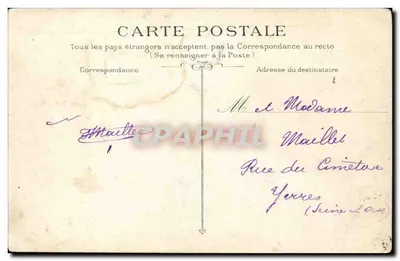 CARTE POSTALE
Tous les pays étrangers n'acceptent pas la Correspondance au recto
(Se renseigner à la Poste)
Correspondance
Adresse du destinataire
M et Madame
Maillet
Rue du Cimetière
Yerres
(Seine & Oise)
Maillet